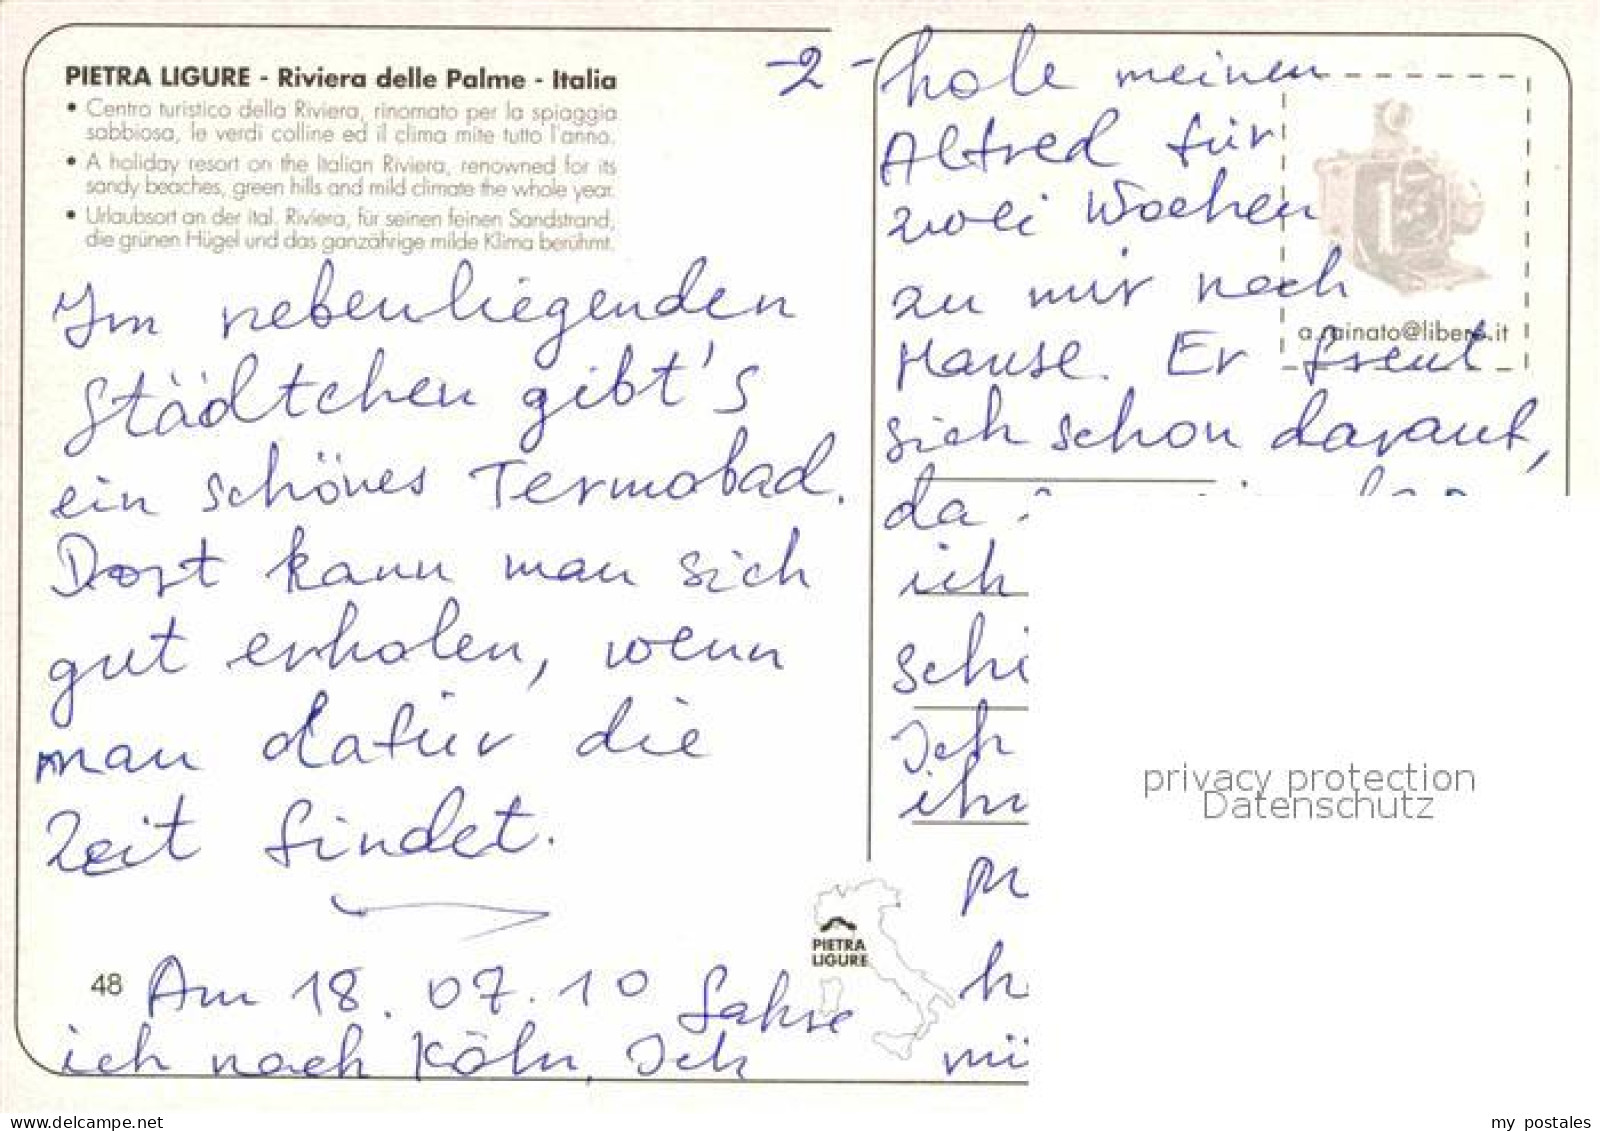 PIETRA LIGURE - Riviera delle Palme - Italia
• Centro turistico della Riviera, rinomato per la spiaggia
sabbiosa, le verdi colline ed il clima mite tutto l'anno.
• A holiday resort on the Italian Riviera, renowned for its
sandy beaches, green hills and mild climate the whole year.
• Urlaubsort an der ital. Riviera, für seinen feinen Sandstrand,
die grünen Hügel und das ganzährige milde Klima berühmt.
-2-
Im nebenliegenden
Städtchen gibt's
ein schönes Termobad.
Dort kann man sich
gut erholen, wenn
man dafür die
Zeit findet.
48
Am 18.07.10 fahre
ich nach Köln. Ich
PIETRA
LIGURE
hole meinen
Alfred für
zwei Wochen
zu mir nach
Hause. Er freut
sich schon darauf,
da
ich
schi
Ich
ihn
h
mü
a.rainato@libero.it
privacy protection
Datenschutz
delcampe.net
my_postales